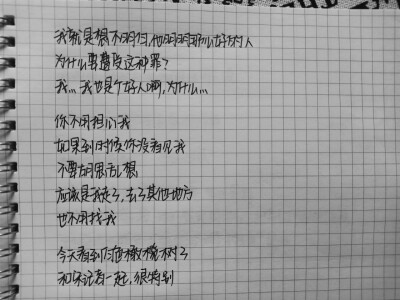 我就是想不明白,他明明那么好的人
为什么要遭受这种罪?
我...我也是个好人啊,为什么...
你不用担心我
如果到时候你没看见我
不要胡思乱想
应该是我走了,去了其他地方
也不用找我
今天看到橄榄树了
和你一起,很特别